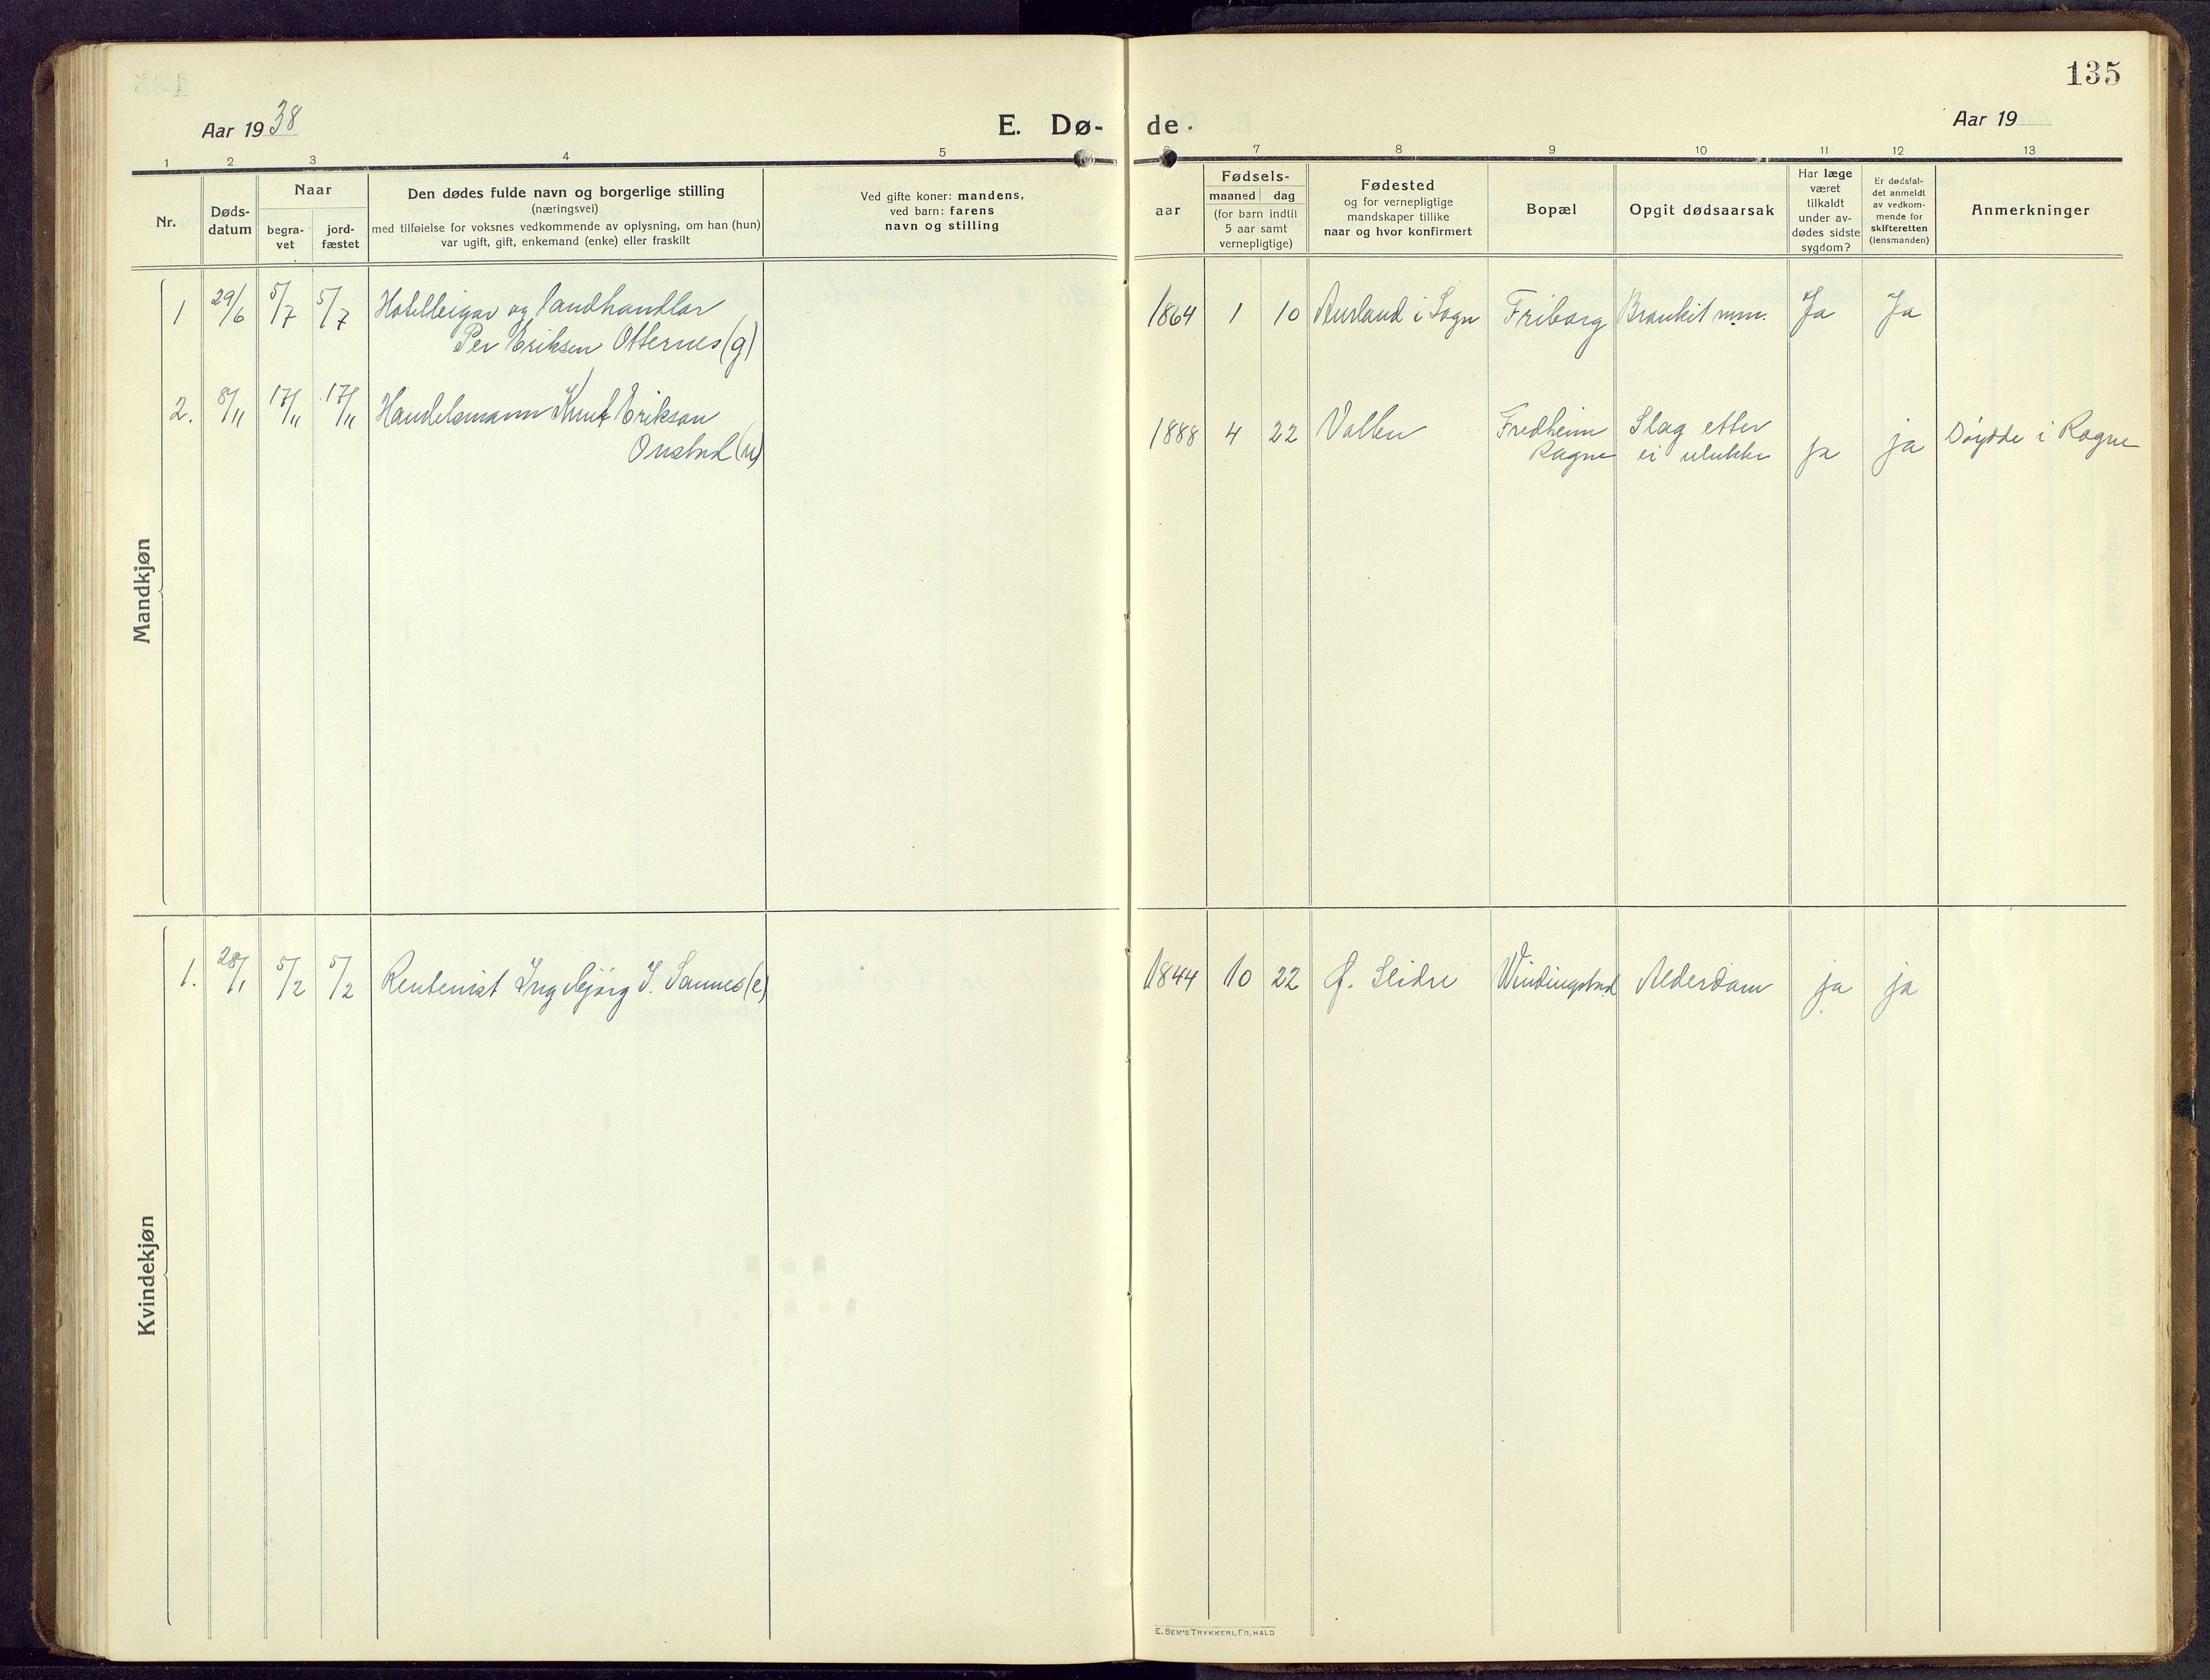 135
Aar 1938
E. Dø-
de.
Aar 19
1 2 3 4 5 6 7 8 9 10 11 12 13
Nr.
Døds-
datum
Naar
begra-
vet
jord-
fæstet
Den dødes fulde navn og borgerlige stilling
(næringsvei)
med tilføielse for voksnes vedkommende av oplysning, om han (hun)
var ugift, gift, enkemand (enke) eller fraskilt
Ved gifte koner: mandens,
ved barn: farens
navn og stilling
Fødsels-
aar
maaned dag
(for barn indtil
5 aar samt
vernepligtige)
Fødested
og for vernepligtige
mandskaper tillike
naar og hvor konfirmert
Bopæl
Opgit dødsaarsak
Har læge
været
tilkaldt
under av-
dødes sidste
sygdom?
Er dødsfal-
det anmeldt
av vedkom-
mende for
skifteretten
(lensmanden)
Anmerkninger
Mandkjøn
1 29/6 5/7 5/7 Hotelleigar og landhandlar 1864 1 10 Aurland i Sogn Friborg Bronkit m.m. Ja Ja
Per Eriksen Otternes (g)
2. 8/11 17/11 17/11 Handelsmann Knut Erikson 1888 4 22 Volbu Fredheim Slag etter ja ja Døydde i Rogne
Onstad (u) Rogne ei ulukke
Kvindekjøn
1. 28/1 5/2 5/2 Rentenist Ingebjørg I. Sannes (e) 1844 10 22 Ø. Slidre Windingstad Alderdom ja ja
E. SEM'S TRYKKERI, FR. HALD